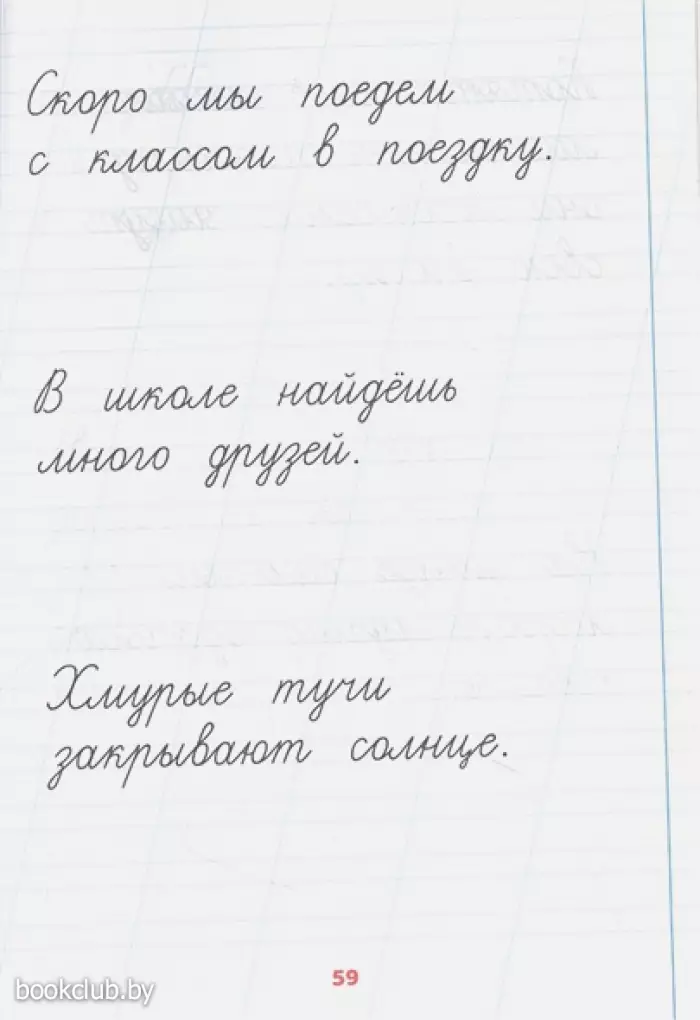 Скоро мы поедем
с классом в поездку.
В школе найдёшь
много друзей.
Хмурые тучи
закрывают солнце.
59
bookclub.by